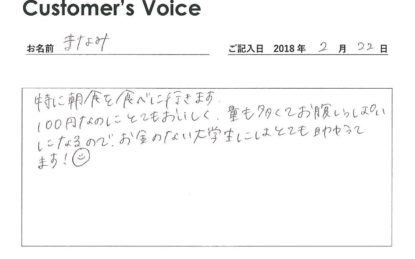 Customer's Voice
お名前 まなみ ご記入日 2018 年 2 月 22 日
特に朝食を食べに行きます.
100円なのにとてもおいしく、量も多くてお腹いっぱい
になるので、お金のない大学生にはとても助かって
ます!